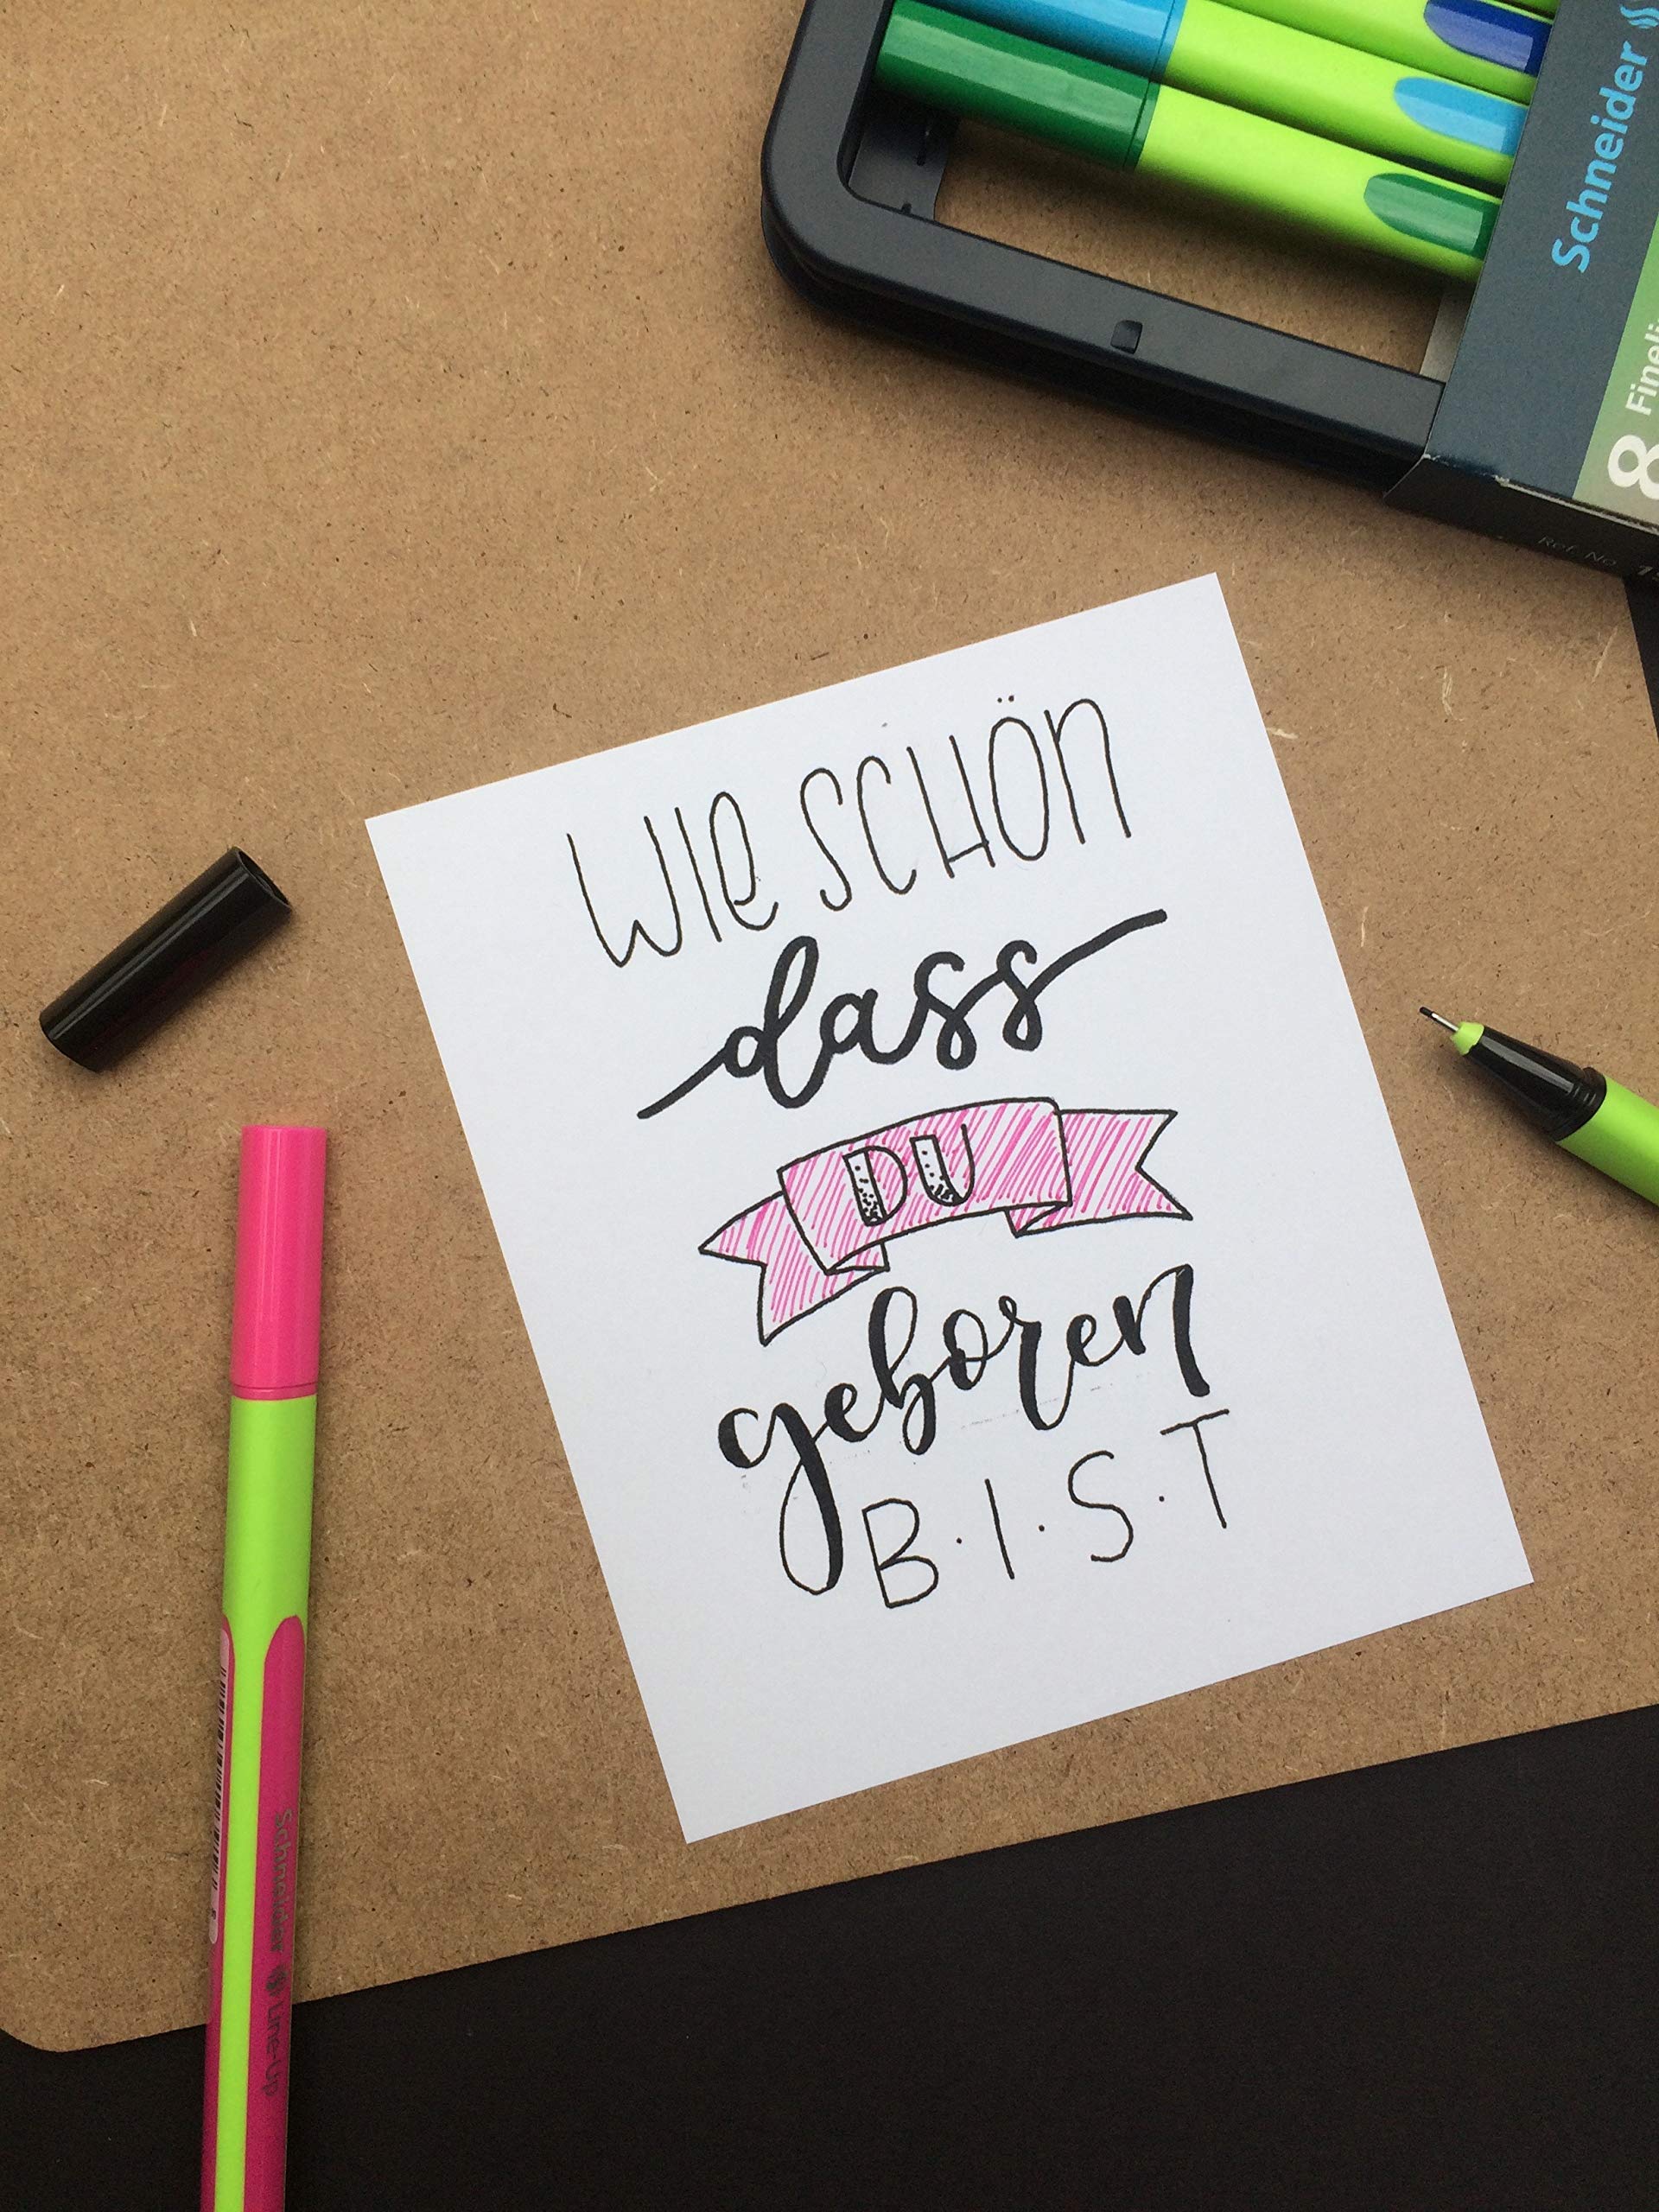 Schneider
8 Fineli
Ref. No. 19
WIE SCHÖN
dass
DU
geboren
B·I·S·T
Schneider Line-Up